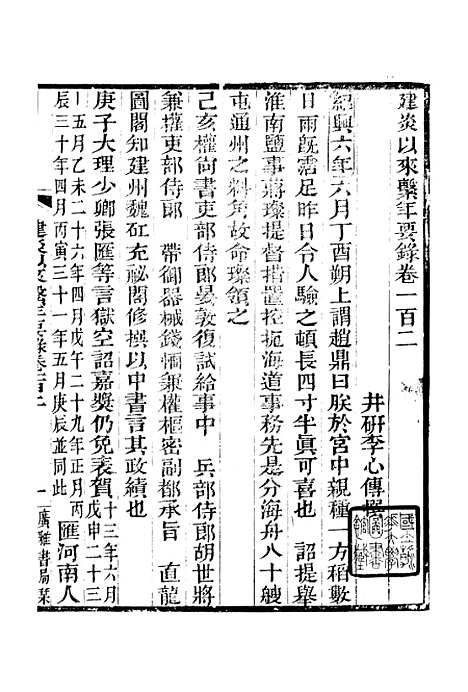 建炎以來繫年要錄卷一百二
井研李心傳撰
紹興六年六月丁酉朔上謂趙鼎曰朕於宮中親種一方稻數
日雨旣霑足昨日令人驗之頓長四寸半眞可喜也　詔提舉
淮南鹽事蔣璨提督措置控扼海道事務先是分海舟八十艘
屯通州之料角故命璨領之
己亥權尚書吏部侍郎晏敦復試給事中　兵部侍郎胡世將
兼權吏部侍郎　帶御器械錢愐兼權樞密副都承旨　直龍
圖閣知建州魏矼充祕閣修撰以中書言其政績也
庚子大理少卿張匯等言獄空詔嘉獎仍免表賀十三年六月戊申二十三
年五月乙未二十六年四月戊午二十九年正月庚辰三十年四月丙寅三十一年五月庚辰並同此　匯河南人
建炎以來繫年要錄卷一百二
一
廣雅書局栞